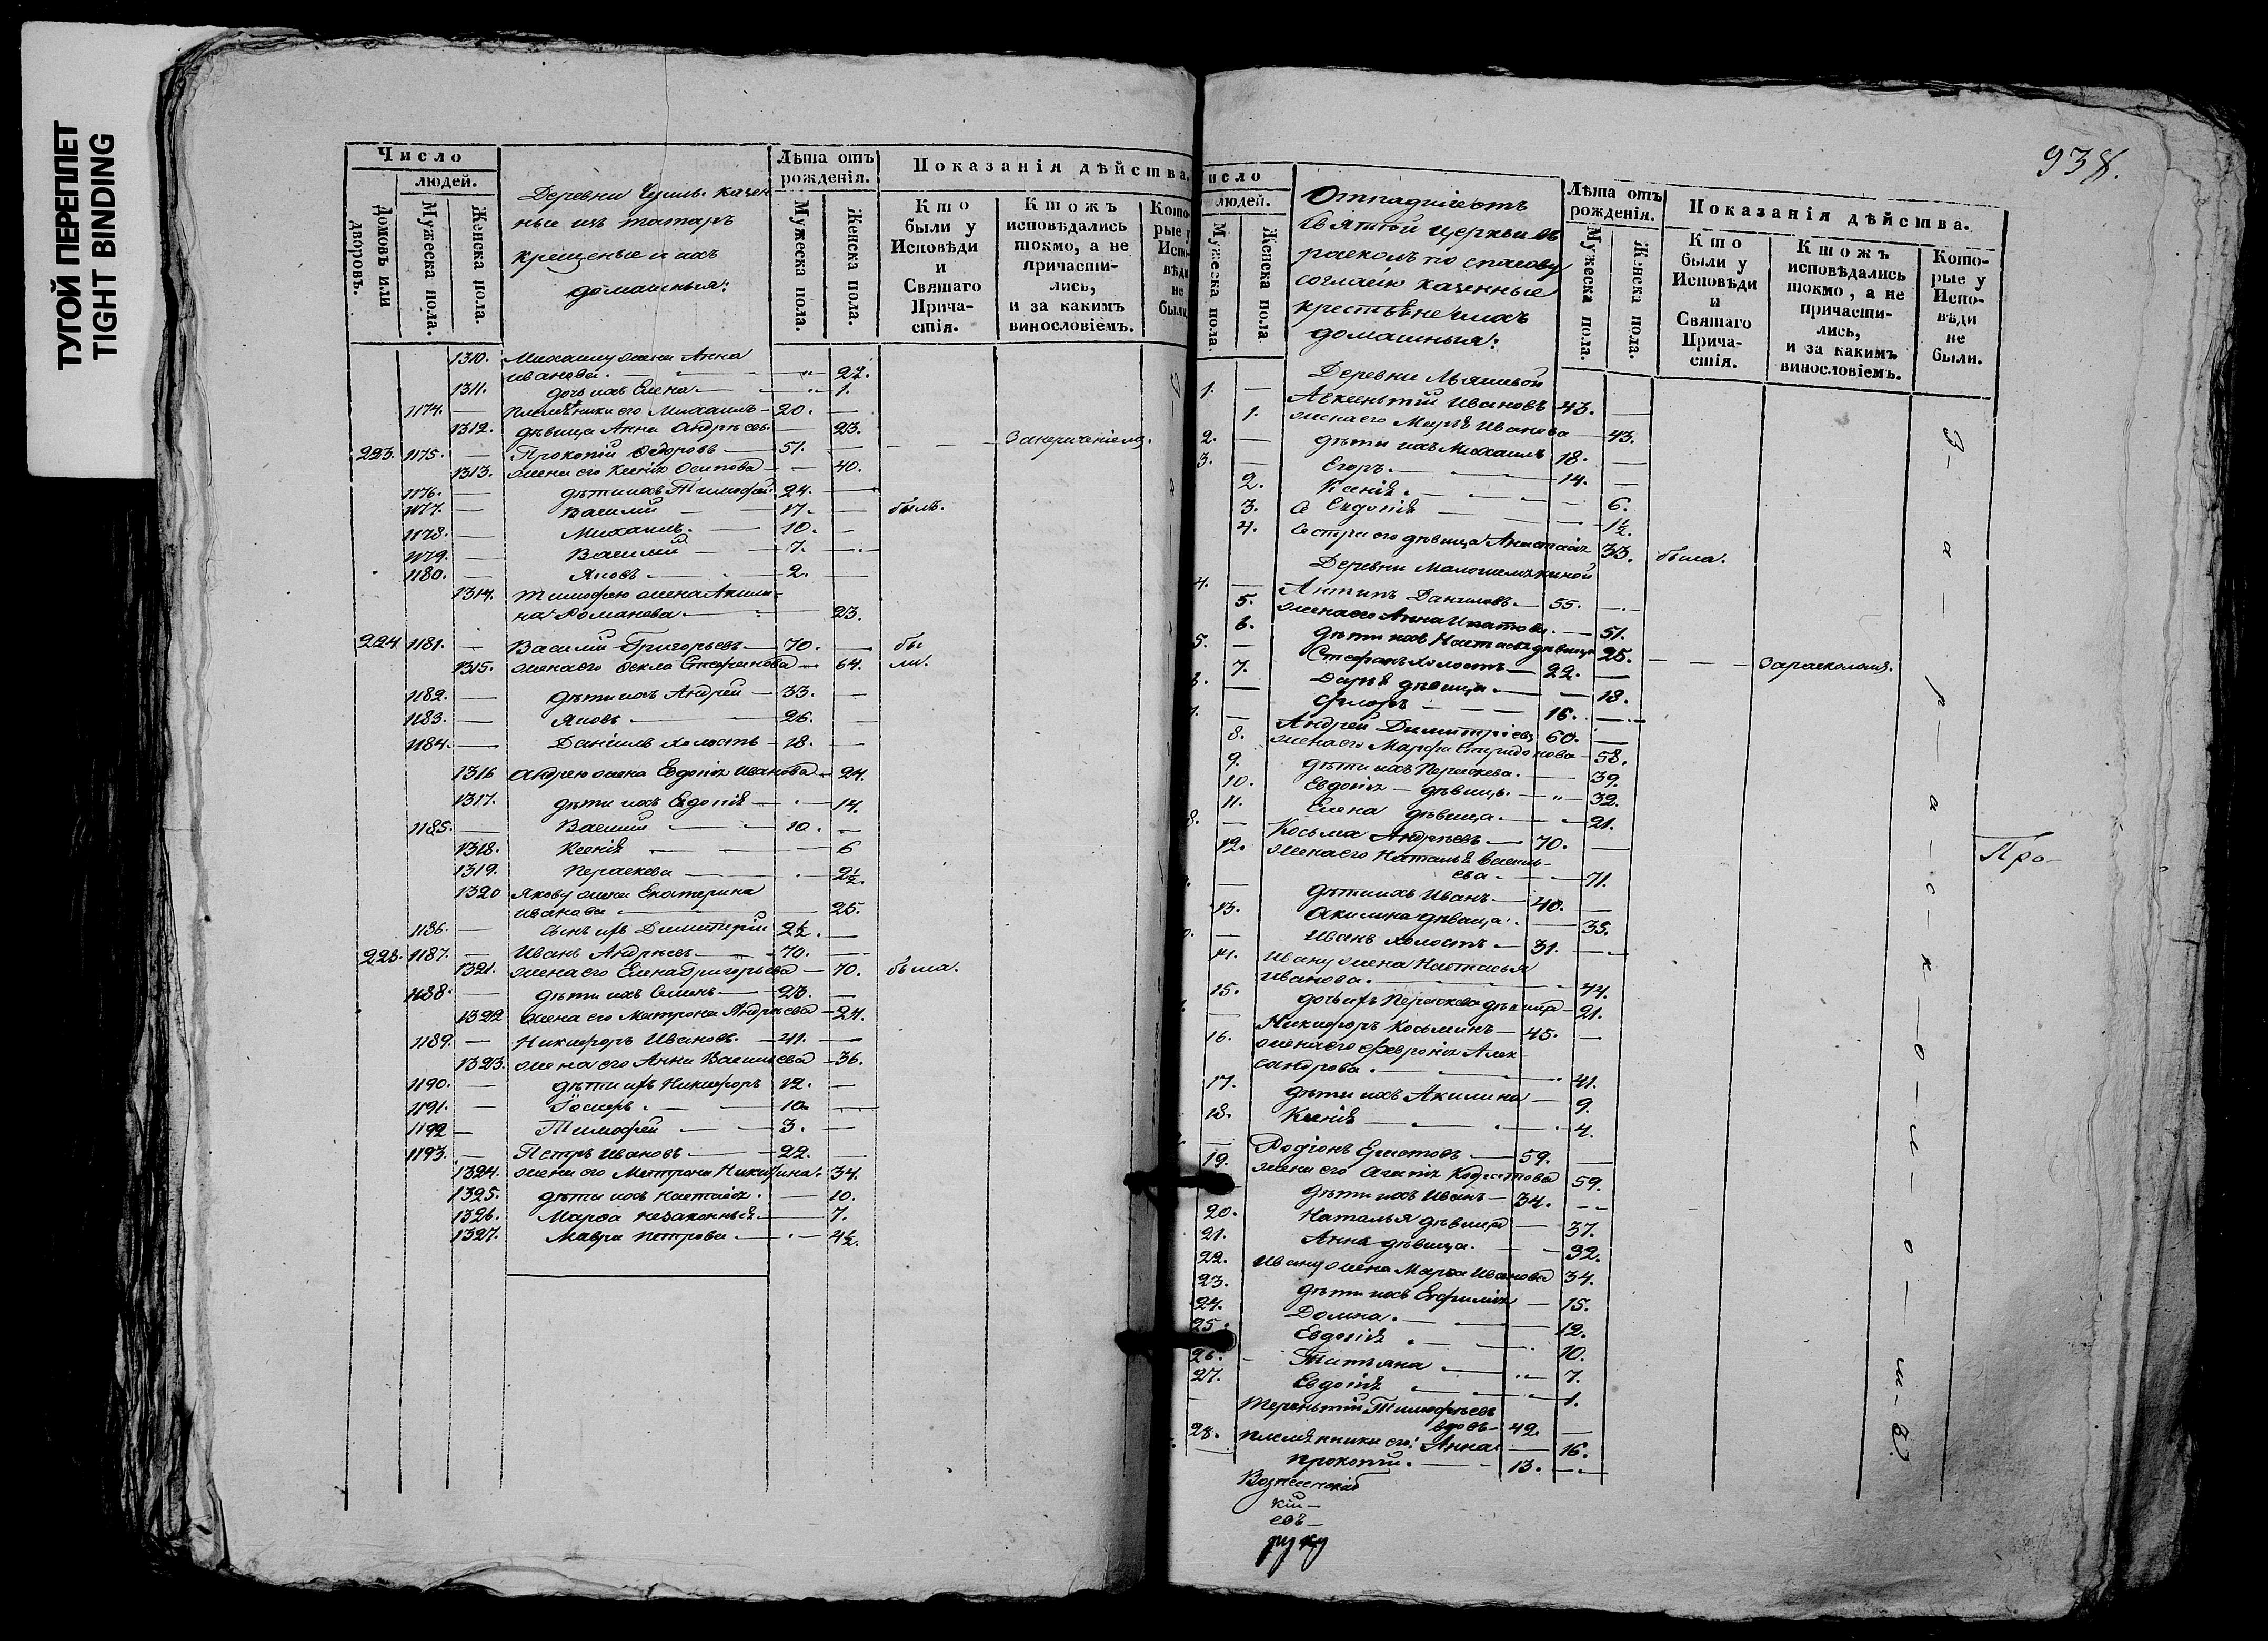 ТУГОЙ ПЕРЕПЛЕТ
TIGHT BINDING
Число
людей.
Домовъ или дворовъ.
Мужеска пола.
Женска пола.
Деревни казен
ные изъ татаръ
крещеные и ихъ
домашныя:
Лѣта отъ рожденія.
Мужеска пола.
Женска пола.
Показанія дѣйства.
Кто были у Исповѣди и Святаго Прича-стія.
Ктожъ исповѣдались токмо, а не причасти-лись, и за какимъ винословіемъ.
Кото-рые у Испо-вѣди не были.
1310. Михаилу жена Анна
Иванова. — 27.
1311. дочь ихъ Елена — 1.
1174. — племянники его Михаилъ — 20. —
1312. дѣвица Анна Андрѣева — 23.
223. 1175. — Прокопій Ѳедоровъ — 51. —
1313. жена его Ксенія Осипова — 40.
1176. — дѣти ихъ Тимофей 24. —
1177. — Василий — 17. — былъ.
1178. — Михаилъ. — 10. —
1179. — Василий — 7. —
1180. — Яковъ — 2. —
1314. Тимофею жена Акили-
на Романова — 23.
224 1181. — Василий Григорьевъ — 70. — бы
1315. жена его Ѳекла Стефанова — 64. ли.
1182. — дѣти ихъ Андрей — 33. —
1183. — Яковъ — 26. —
1184. — Даніилъ холостъ — 18. —
1316 Андрею жена Евдокія Иванова — 24.
1317. дѣти ихъ Евдокія — 14.
1185. — Василий — 10. —
1318. Ксенія — 6
1319. Параскева — 2½.
1320 Якову жена Екатерина
Иванова — 25.
1186. — сынъ ихъ Димитрий 2½. —
225. 1187. — Иванъ Андрѣевъ — 70. —
1321. жена его Елена Григорьева — 70. была.
1188. — дѣти ихъ — 23. —
1322 жена его Матрона Андрѣева — 24.
1189. — Никифоръ Ивановъ — 41. —
1323. жена его Анна Васильева — 36.
1190. — дѣти ихъ Никифоръ 12. —
1191. — — 10. —
1192 — Тимофей — 3. —
1193. — Петръ Ивановъ — 22. —
1324. жена его Матрона Никитина. 34.
1325. дѣти ихъ Настасія. — 10.
1326. Марѳа незаконная — 7.
1327. Мавра Петрова — 4½.
938.
исло
людей.
Мужеска пола.
Женска пола
Отпадшіе отъ
Святой церкви въ
расколъ по спасову
согласію казенные
крестьяне и ихъ
домашныя:
Лѣта отъ рожденія.
Мужеска пола.
Женска пола.
Показанія дѣйства.
Кто были у Исповѣди и Святаго Прича-стія.
Ктожъ исповѣдались токмо, а не причасти-лись, и за какимъ винословіемъ.
Кото-рые у Испо-вѣди не были.
Деревни
1. — Авксентий Ивановъ 43. —
1. жена его Марья Иванова — 43.
2. — дѣти ихъ Михаилъ 18. —
3. — Егоръ. — 14. —
2. Ксенія. — 6.
3. Евдокія — 1½.
4. Сестра его дѣвица Анастасія 33. была.
Деревни
4. — Антипъ Даниловъ — 55. —
5. жена его Анна Ипатова — 51.
6. дѣти ихъ Настасья дѣвица 25.
5. — Стефанъ холостъ — 22. — за расколомъ.
7. Дарья дѣвица — 18.
6. — Флоръ — 16. —
7. — Андрей Димитріевъ 60. —
8. жена его Марѳа Спиридонова — 58.
9. дѣти ихъ Параскева. — 39.
10. Евдокія — дѣвица. — 32.
11. Елена дѣвица. — 21.
8. — Косьма Андрѣевъ — 70. —
12. жена его Наталья Василь-
ева — 71.
— дѣти ихъ Иванъ — 40. —
13. Акилина дѣвица — 35.
— Иванъ холостъ — 31. —
14. Ивану жена Настасья
Иванова. — 44.
15. дочь ихъ Параскева дѣвица — 21.
— Никифоръ Косьминъ — 45. —
16. жена его Февронія Алек-
сандрова. — 41.
17. дѣти ихъ Акилина — 9.
18. Ксенія — 4.
— Родіонъ — 59. —
19. жена его Агапія 59.
дѣти ихъ Иванъ — 34. —
20. Наталья дѣвица — 37.
21. Анна дѣвица. — 32.
22. Ивану жена Марѳа Иванова 34.
23. дѣти ихъ Евфимія — 15.
24. Домна. — 12.
25. Евдокія — 10.
26. Татіяна — 7.
27. Евдокія — 1.
Терентий Тимофѣевъ
вдовъ — 42. —
28. племянники его: Анна — 16.
— Прокопий. — 13. —
За расколомъ
Про-
кій —
евъ —
руку